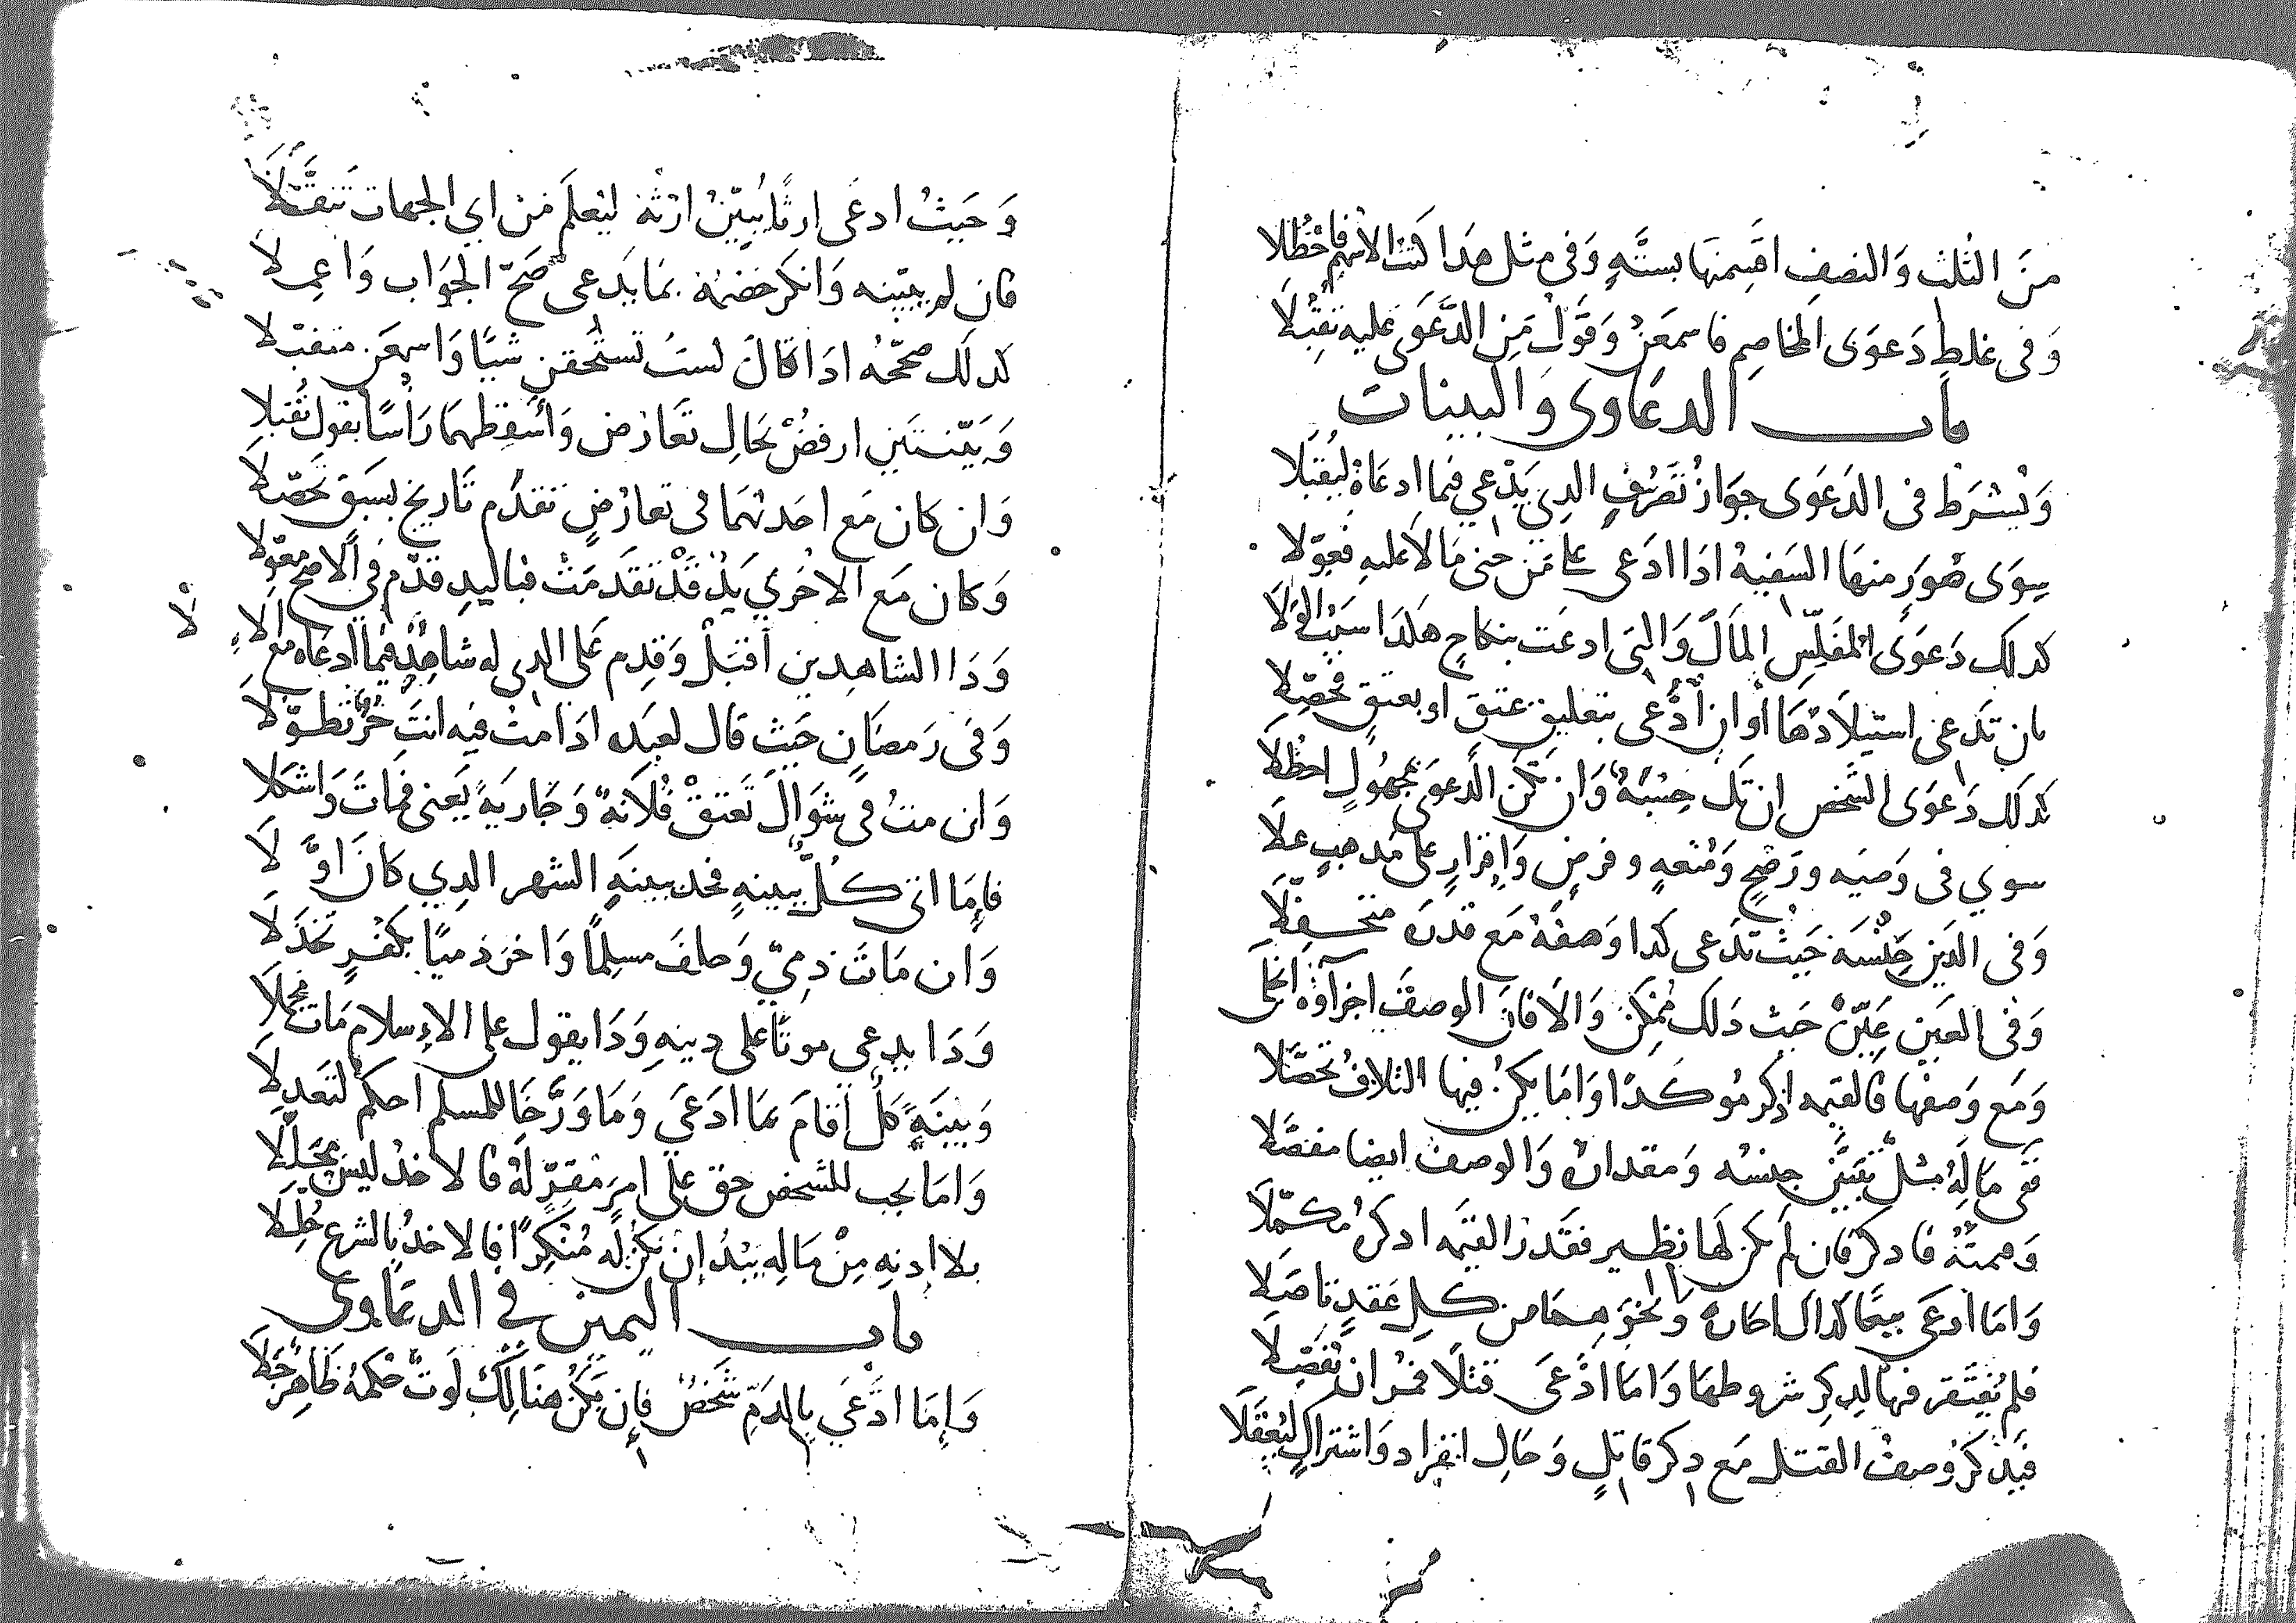 منَ الثُلث وَالنصفِ اقسِمنها بستَّهٍ وَفى مثل هدَا كتْب الاسْهم فاحْظُلا
وَفى غلطٍ دَعوَى المخاصِمِ فاسمعَنْ وَقَوْل مَنِ الدَّعوَى عليه تقبَّلا
باب الدعاوى والبينات
وَيُشرَط فى الدَعوَى جوَازُ تَصَرُّفٍ الدِي يَدْعي فيما ادعَاهُ ليُقبَلا
سِوَى صُوَرٍ منهَا السَفيهُ ادَا ادَعى على مَن جنى مَالاً عليهِ فعوّلا
كدلك دَعوَى المفلِّسِ المَالَ وَالتى ادعَت بنكاحٍ هكدَا سَيّبُ الوَلا
بان تدعى استيلادهَا أوان ادَّعى بتعليق عتق او بعتقٍ فحصِّلا
كدلك دَعوَى الشَخص ان تَك حِسْبَةً وَان تكُن الدَّعوَى بمجهُولٍ احظُلا
سوي فى وَصيَه ورَضحٍ وَمُتعهٍ وفرضٍ وَإقرَارٍ على مَدهبٍ علا
وَفى الدَين جِنْسَه حَيثُ تدَعى كدا وَصفَهُ مَع قدرَه
وَفى العَين عَيِّنْ حَيث دَلك مُمْكنٌ وَالا فانّ الوصفَ اجزاؤهُ انجلى
وَمَع وَصفها فالقيمه اذكر مُوكدًا وَامَا يكنْ فيها التلافُ تحصَّلا
ففى مَا لَهُ مثلٌ تُبَيّن جنسُه وَمقدارهُ وَالوصفُ ايضا مفصَّلا
فادكر فان لم تكن لها نظير فقدرَ القيمَه ادكرهُ مكمّلا
وَامَا ادعَى بيعًا كداك وَنحوَهما من كلِ عَقدٍ تاصَلا
فلم يُفتَقر فيها لدِكرِ شروطها وَامَا ادَّعَى قتلاً فمُر ان تُفصِّلا
فيَذكُرُ وَصفُ القتل مَع دكرِ قاتلٍ وَحَالِ انفراد وَاشتراكٍ ليُعقَلا
وَحَيثُ ادعَى ارثًا يُبَيّنُ ارْثهُ ليُعلَم مَنْ اي الجهات تنقَّلا
فان لم يبيّنه وَانكر خصمُهُ بمَا يدَعى صَحّ الجوَاب وَاعمِلا
كدلك صحّحْهُ ادَا قالَ لستَ تستحقن شيئًا وَاسمعَن متقبّلا
وَبَيّنتَين ارفضْ بحَالِ تعَارُض وَأسقِطهمَا رَأسًا بقول تُقبلا
وَان كان مَع احَدتهمَا فى تعارُضٍ تقدُّم تاريخ بسَبقٍ تحصّلا
وَكان مَع الاخْري يَدٌ قَدْ تقدَمَتْ فباليدِ قدّم في الاصح معوّلا
وَدَا الشاهدين اقبَلْ وَقدِم عَلى الدى له شاهِدٌ فيما ادعَاه مع الاءِ لا
وَفى رَمضَانٍ حَيث قال لعبَده ادَا مت فيه انتَ حُرٌّ تطوّلا
وَان متُ فى شوَالَ تَعتقْ فُلانَهٌ وَجَاريَةً يَعنى فمَاتَ وَاشكلا
فإمَا اتى كلٌّ ببينهٍ فخد ببينهِ الشهر الدِي كانَ اوَّلا
وَان مَات ذميّ وَخلفَ مسلمًا وَاخرَ ذميًا بكفرٍ تخَذَّلا
وَدَا يدعى موتًا على دينهِ وَدَا يقول على الاسلام مَات مجملا
وَبينَهً كلٌ أقامَ بمَا ادَعَي وَمَا وَرَّخَا للمسلم احكمْ لتَعدِلا
وَامَا يجب للشخص حق على امرِءٍ مُقِرٍّ لَهُ فالاخذ ليسَ محَلّلا
بلا ادنهِ مِنْ مَالِه يَبْدُ إن يكُن لَه مُنْكِرًا فالاخذُ بالشرع حُلِّلا
باب اليمين في الدعاوى
وَإمَا ادَّعَي بالدَمِّ شَخصٌ فإن يَكُن هنَالِكَ لَوثٌ حُكمُهُ ظاهرٌ جَلا